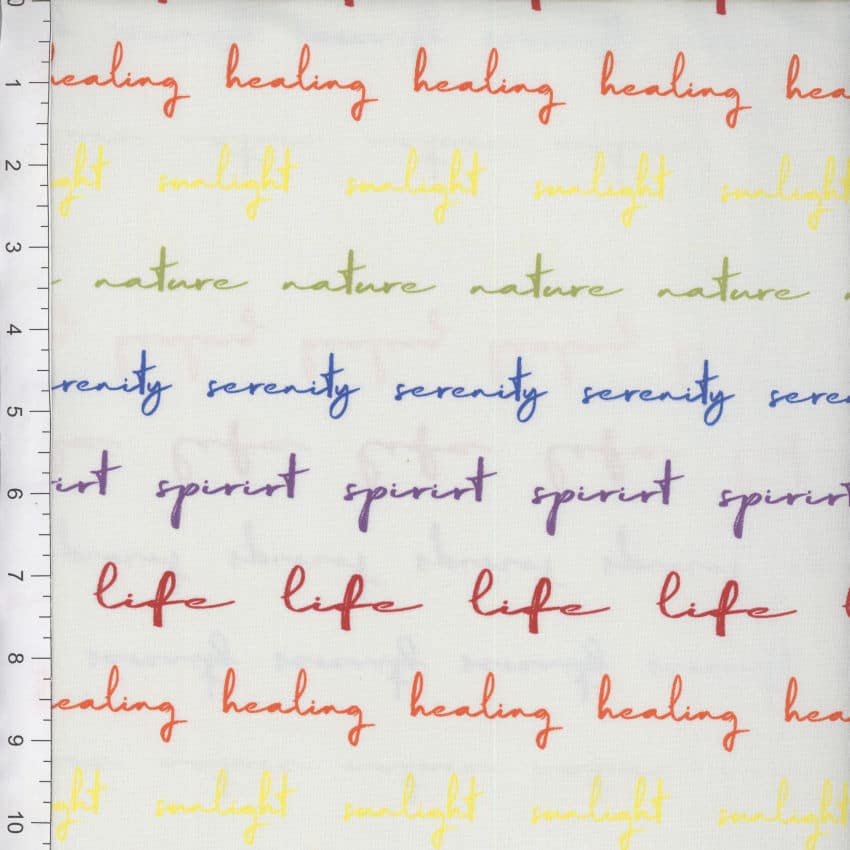 healing healing healing healing hea
ght sunlight sunlight sunlight sunlight
nature nature nature nature
renity serenity serenity serenity sere
irt spirirt spirirt spirirt spirirt
life life life life
ealing healing healing healing hea
ght sunlight sunlight sunlight sunlight
0
1
2
3
4
5
6
7
8
9
10